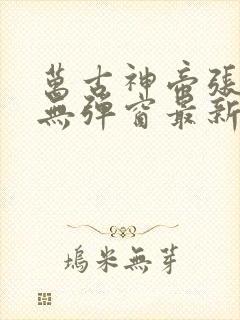 萬古神帝張
無彈窗最新
塢米無芽